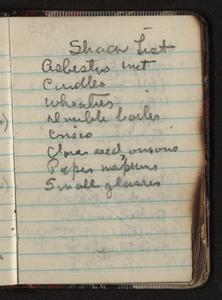 Shack List
Asbestos mat
Candles
Wheaties
Double boiler
Crisco
onions
Paper napkins
Small glasses